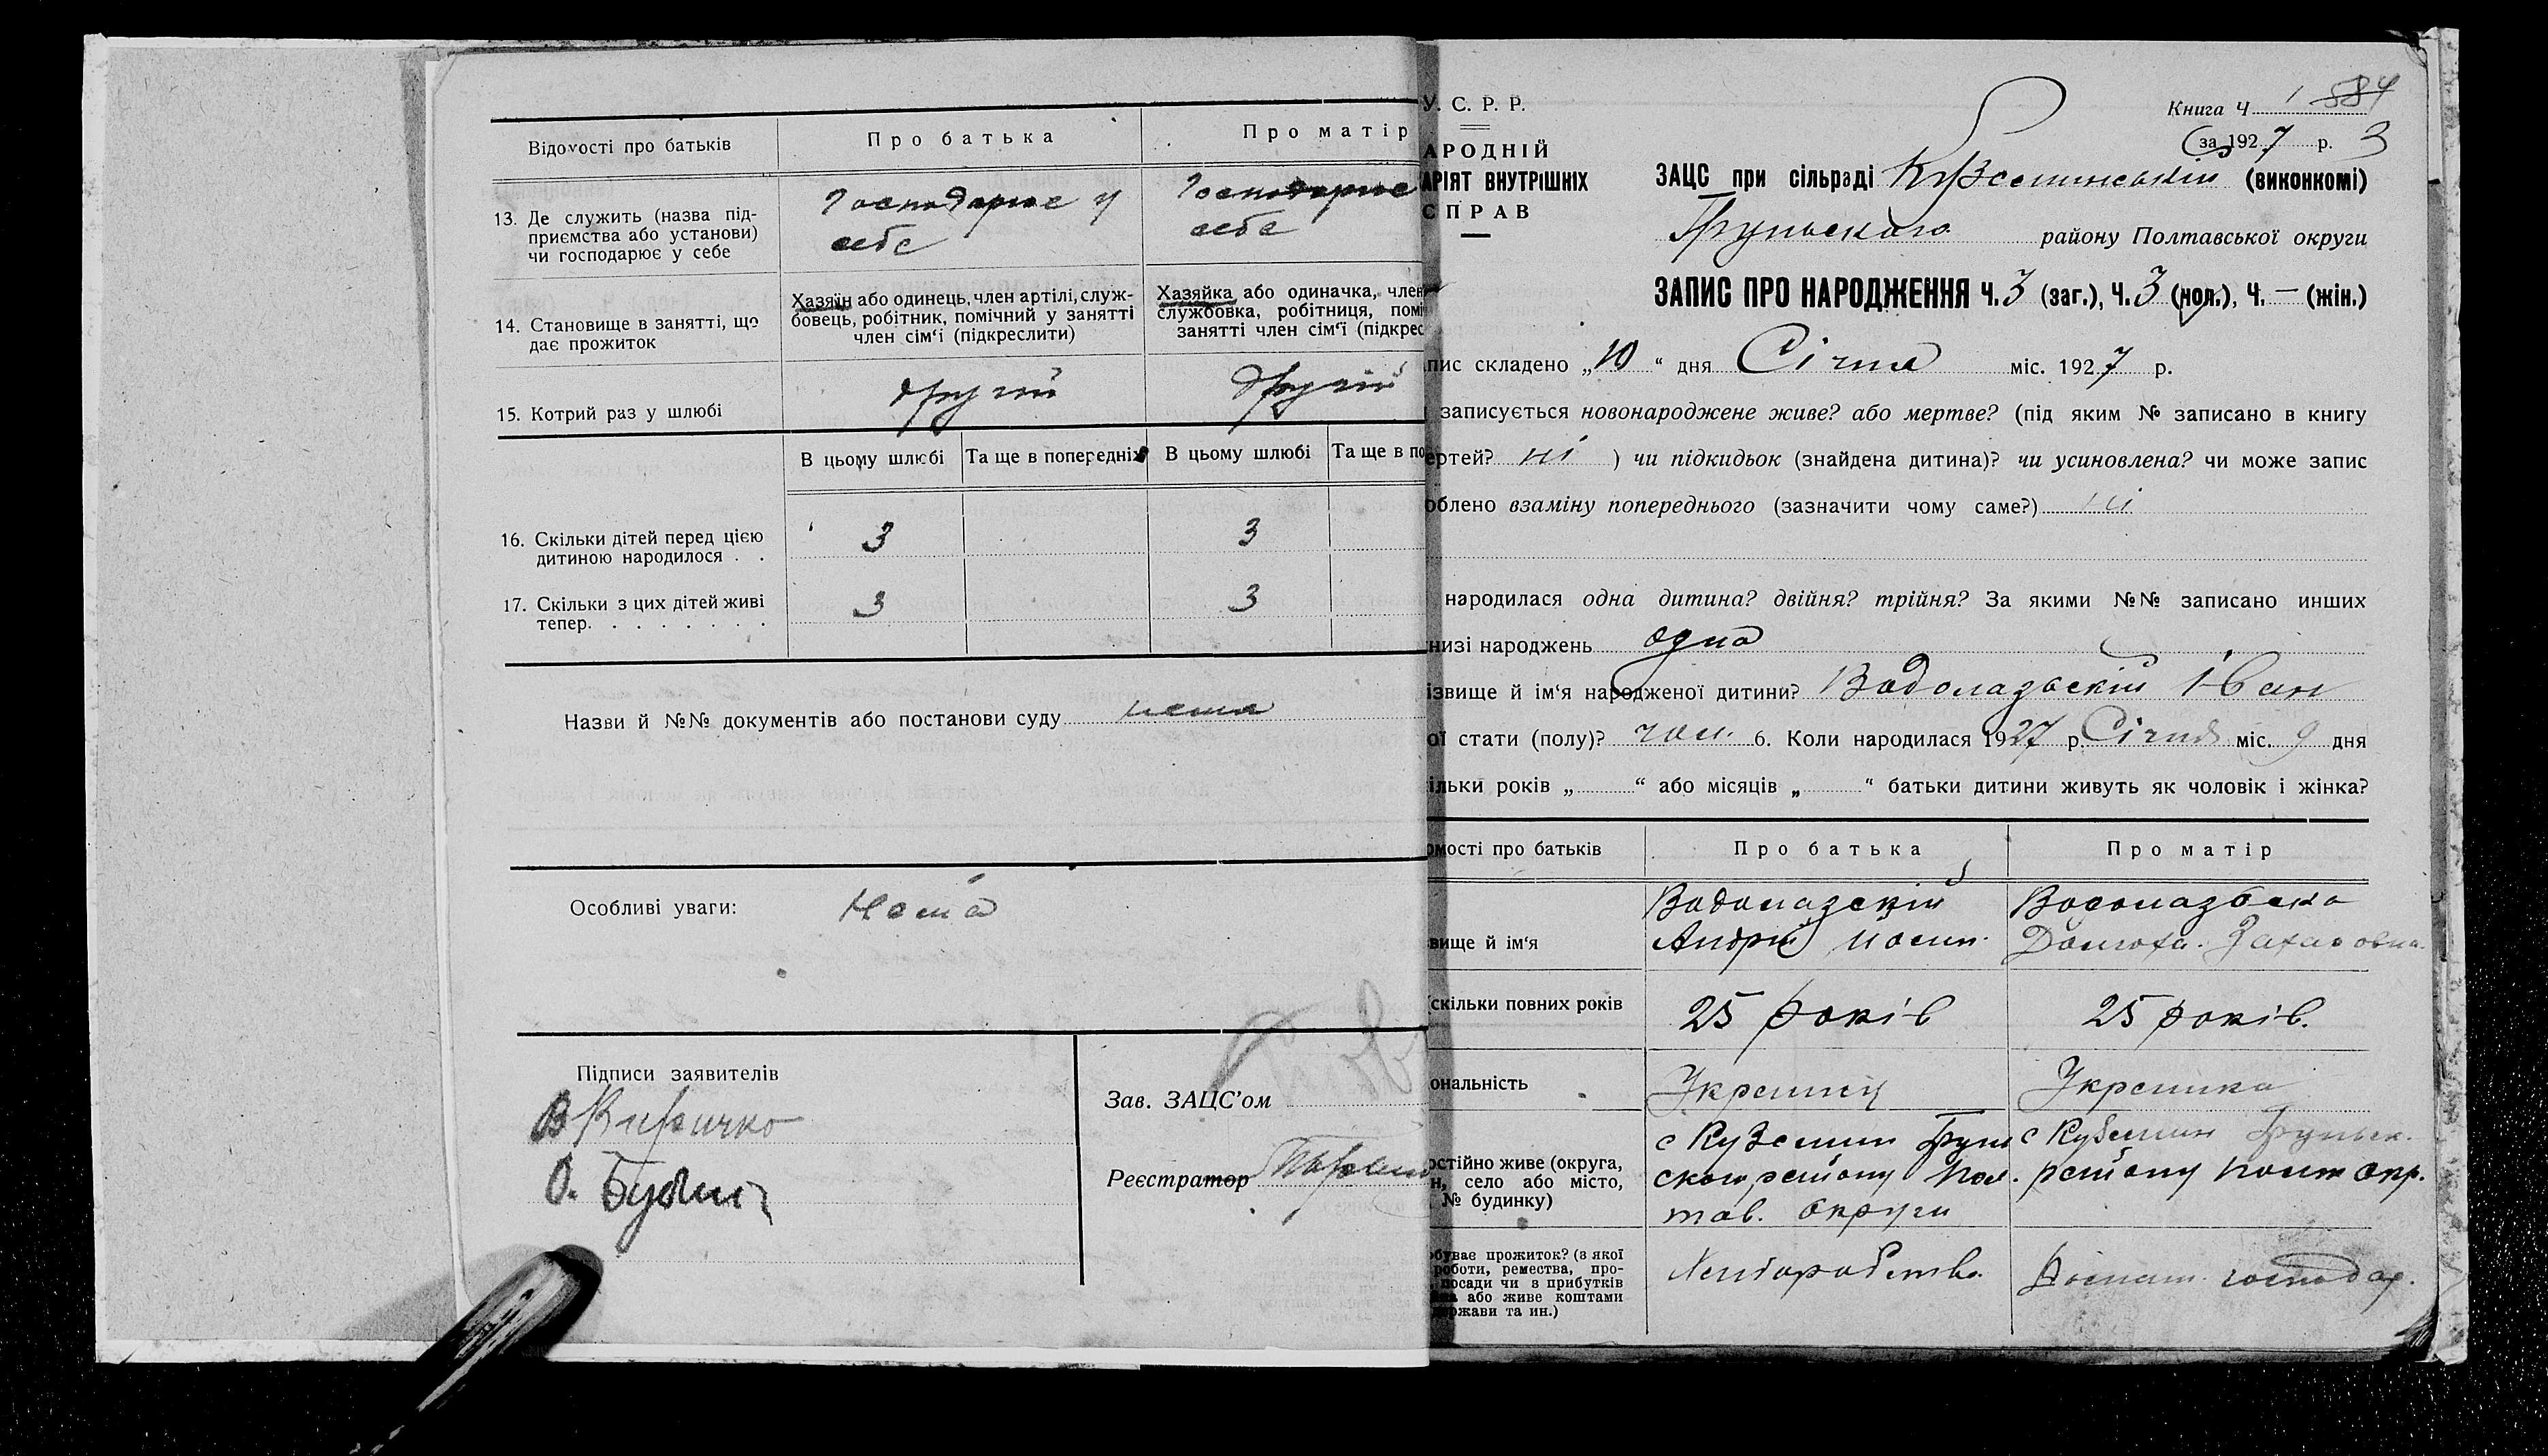 Відомості про батьків
Про батька
Про матір
13. Де служить (назва під-
приємства або установи)
чи господарює у себе
Господарює у
себе
Господарює
себе
14. Становище в занятті, що
дає прожиток
Хазяїн або одинець, член артілі, служ-
бовець, робітник, помічний у занятті
член сім‘ї (підкреслити)
Хазяйка або одиначка, член
службовка, робітниця, помі
занятті член сім‘ї (підкрес
15. Котрий раз у шлюбі
другий
другий
В цьому шлюбі
Та ще в попередніх
В цьому шлюбі
Та ще в по
16. Скільки дітей перед цією
дитиною народилося . .
3
3
17. Скільки з цих дітей живі
тепер. . . . . . . .
3
3
Назви й №№ документів або постанови суду нема
Особливі уваги: Нема
Підписи заявителів
В Киричко
О.
Зав. ЗАЦС’ом
Реєстратор
У. С. Р. Р.
АРОДНІЙ
АРІЯТ ВНУТРІШНІХ
СПРАВ
Книга Ч 1 584
за 1927 р. 3
ЗАЦС при сільраді Куземинській (виконкомі)
Грунського району Полтавської округи
ЗАПИС ПРО НАРОДЖЕННЯ Ч. 3 (заг.), Ч. 3 (чол.), Ч. — (жін.)
пис складено „10“ дня Січня міс. 1927 р.
записується новонароджене живе? або мертве? (під яким № записано в книгу
ертей? ні ) чи підкидьок (знайдена дитина)? чи усиновлена? чи може запис
облено взаміну попереднього (зазначити чому саме?) ні
народилася одна дитина? двійня? трійня? За якими №№ записано инших
низі народжень одна
ізвище й ім‘я народженої дитини? Водолазьский Іван
ої стати (полу)? чол. 6. Коли народилася 1927 р. Січня міс. 9 дня
ільки років „ “ або місяців „ “ батьки дитини живуть як чоловік і жінка?
омості про батьків
Про батька
Про матір
звище й ім‘я
Водолазский
Андрій
Водолазьска
Захаровна
скільки повних років
25 років
25 років.
ональність
Українець
Українка
остійно живе (округа,
н, село або місто,
№ будинку)
с Куземин Грун
ского району Пол.
тав. округи
с Куземин Грунськ.
району Полт окр.
буває прожиток? (з якої
роботи, ремества, про-
посади чи з прибутків
або живе коштами
ержави та ин.)
Хліборобство
господар.